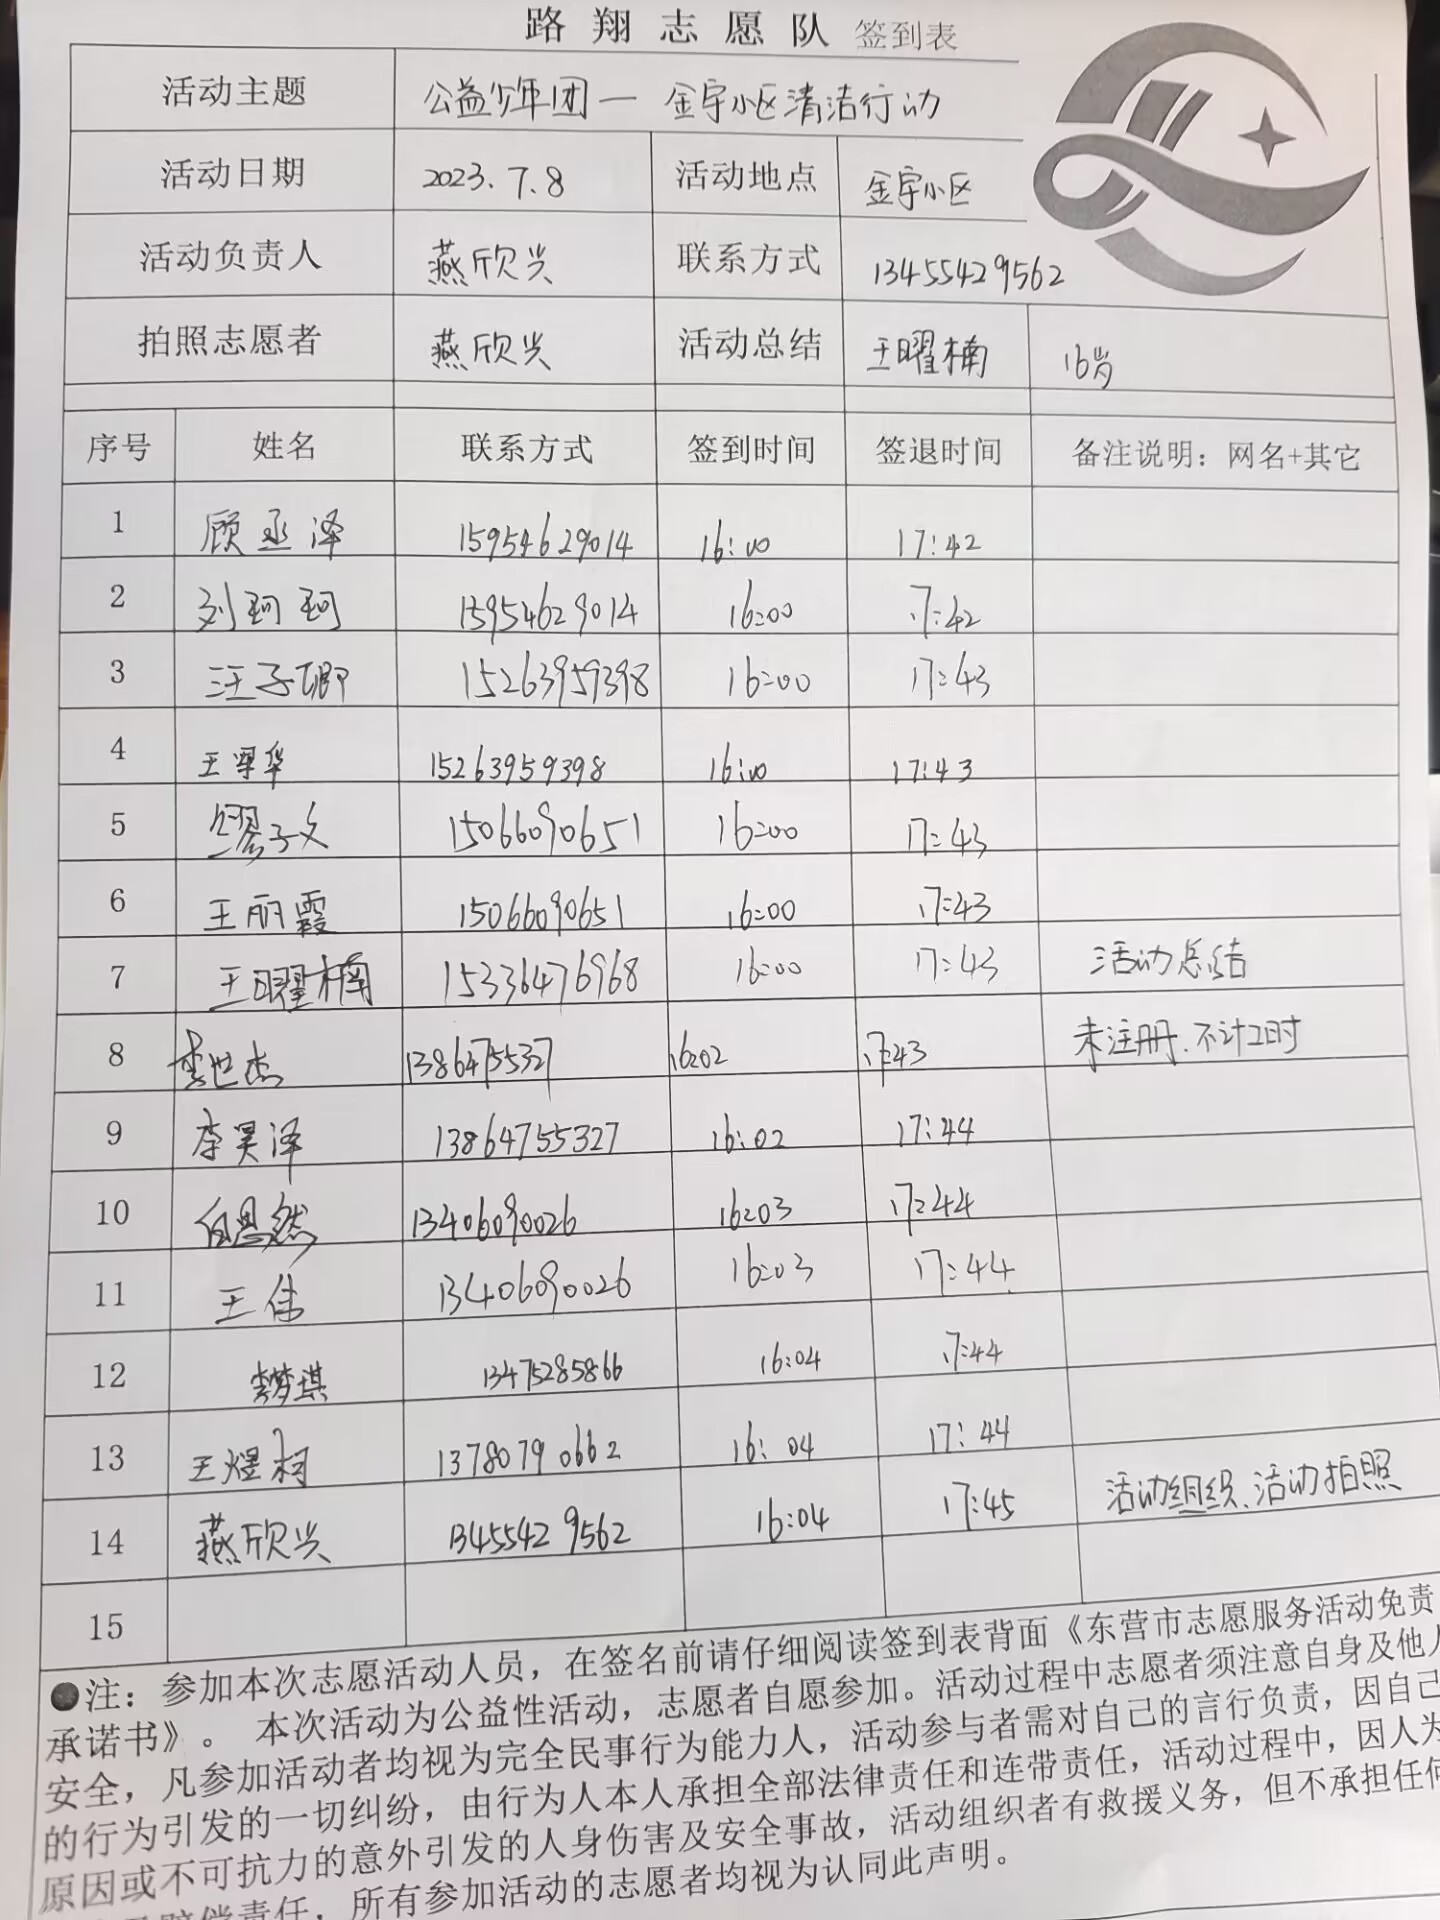 路翔志愿队 签到表
活动主题 公益少年团— 金宇小区清洁行动
活动日期 2023.7.8 活动地点 金宇小区
活动负责人 燕欣兴 联系方式 13455429562
拍照志愿者 燕欣兴 活动总结 王曜楠 16岁
序号 姓名 联系方式 签到时间 签退时间 备注说明：网名+其它
1 顾丞泽 15954629014 16:00 17:42
2 刘珂珂 15954629014 16:00 17:42
3 汪子卿 15263959398 16:00 17:43
4 王翠华 15263959398 16:00 17:43
5 缪子文 15066090651 16:00 17:43
6 王丽霞 15066090651 16:00 17:43
7 王曜楠 15336476968 16:00 17:43 活动总结
8 李世杰 13864755327 16:02 17:43 未注册.不计工时
9 李昊泽 13864755327 16:02 17:44
10 伯恩然 13406090026 16:03 17:44
11 王伟 13406090026 16:03 17:44
12 李梦琪 13475285866 16:04 17:44
13 王煜柯 13780790662 16:04 17:44
14 燕欣兴 13455429562 16:04 17:45 活动组织、活动拍照
15
●注：参加本次志愿活动人员，在签名前请仔细阅读签到表背面《东营市志愿服务活动免责
承诺书》。 本次活动为公益性活动，志愿者自愿参加。活动过程中志愿者须注意自身及他人
安全，凡参加活动者均视为完全民事行为能力人，活动参与者需对自己的言行负责，因自己
的行为引发的一切纠纷，由行为人本人承担全部法律责任和连带责任，活动过程中，因人为
原因或不可抗力的意外引发的人身伤害及安全事故，活动组织者有救援义务，但不承担任何
赔偿责任，所有参加活动的志愿者均视为认同此声明。